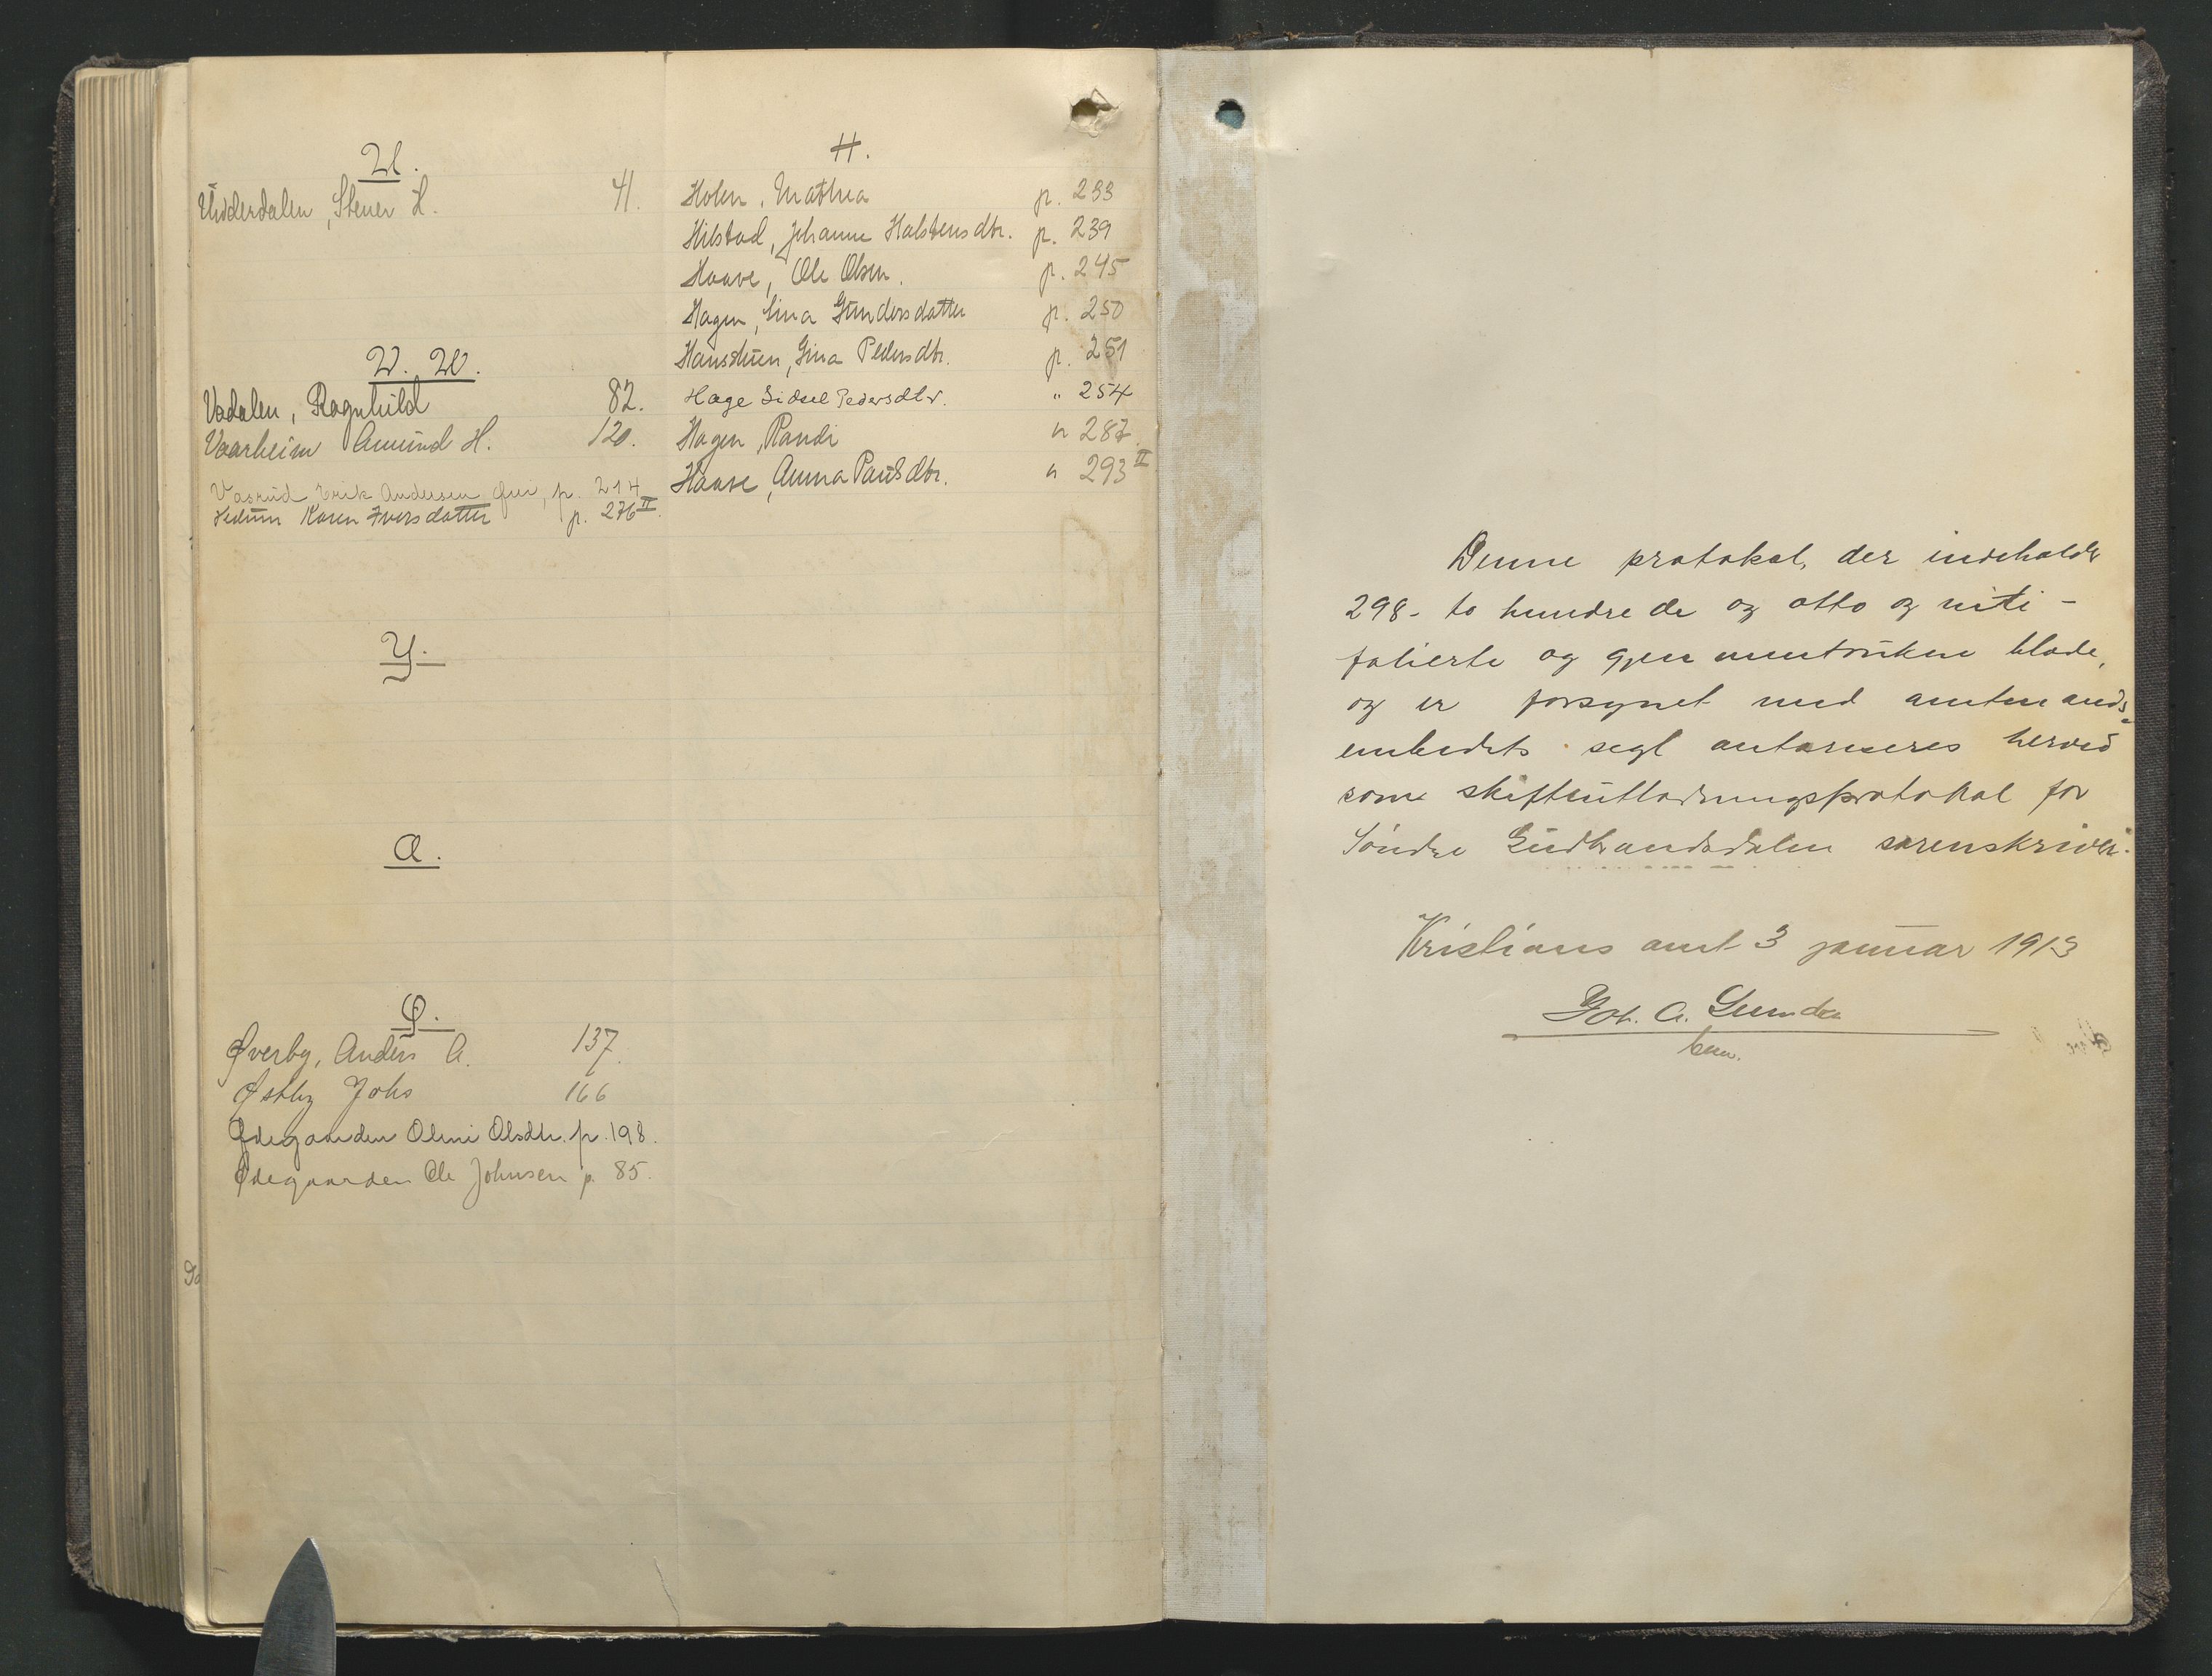 U.
Udderdalen, Stener L. 41.
V. W.
Vadalen, Ragnhild 82.
Vaarheim Amund H. 120.
Vasrud Erik Andersen p. 214
Karen Iversdatter p. 276 II.
Y.
A.
Ø.
Øverby, Anders A. 137.
Østby Johs 166
Ødegaarden Oline Olsdtr. p. 198.
Ødegaarden Ole Johnsen p. 85.
H.
Holen, Mathea p. 233
Hilstad, Johanne Halstensdtr. p. 239
Haave, Ole Olsen. p. 245
Hagen, Lina Gundersdatter p. 250
Gina Pedersdtr. p. 251
Hage Sidsel Pedersdtr. " 254
Hagen, Randi " 287.
Haave, Anna Paulsdtr. " 293 II
Denne protokol, der indeholder
298 - to hundrede og otto og nitti -
folierte og gjennemtrukne blade,
og er forsynet med amtmands-
embedets segl autoriseres herved
som skifteutlodningsprotokol for
Søndre Gudbrandsdalen sorenskriveri.
Kristians amt 3 januar 1913
Joh. A. Lunde
kon.